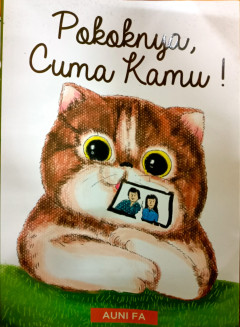 Pokoknya,
Cuma Kamu !
AUNI FA